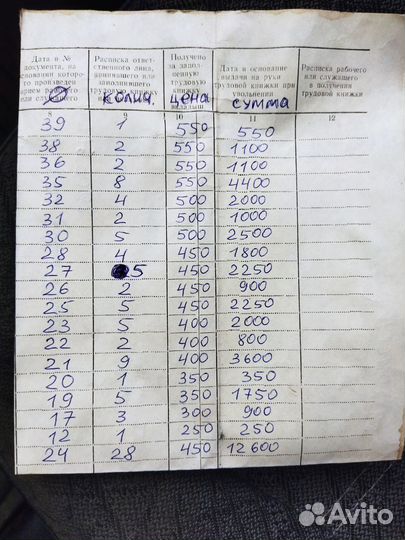 Дата и № документа, на основании которого произведен прием рабочего или служащего
Расписка ответственного лица, принявшего или заполнившего трудовую книжку
Получено за заполненную трудовую книжку вкладыш
Дата и основание выдачи на руки трудовой книжки при увольнении
Расписка рабочего или служащего в получении трудовой книжки
∅ колич. цена сумма
8 9 10 11 12
39 1 550 550
38 2 550 1100
36 2 550 1100
35 8 550 4400
32 4 500 2000
31 2 500 1000
30 5 500 2500
28 4 450 1800
27 5 450 2250
26 2 450 900
25 5 450 2250
23 5 400 2000
22 2 400 800
21 9 400 3600
20 1 350 350
19 5 350 1750
17 3 300 900
12 1 250 250
24 28 450 12600
Avito